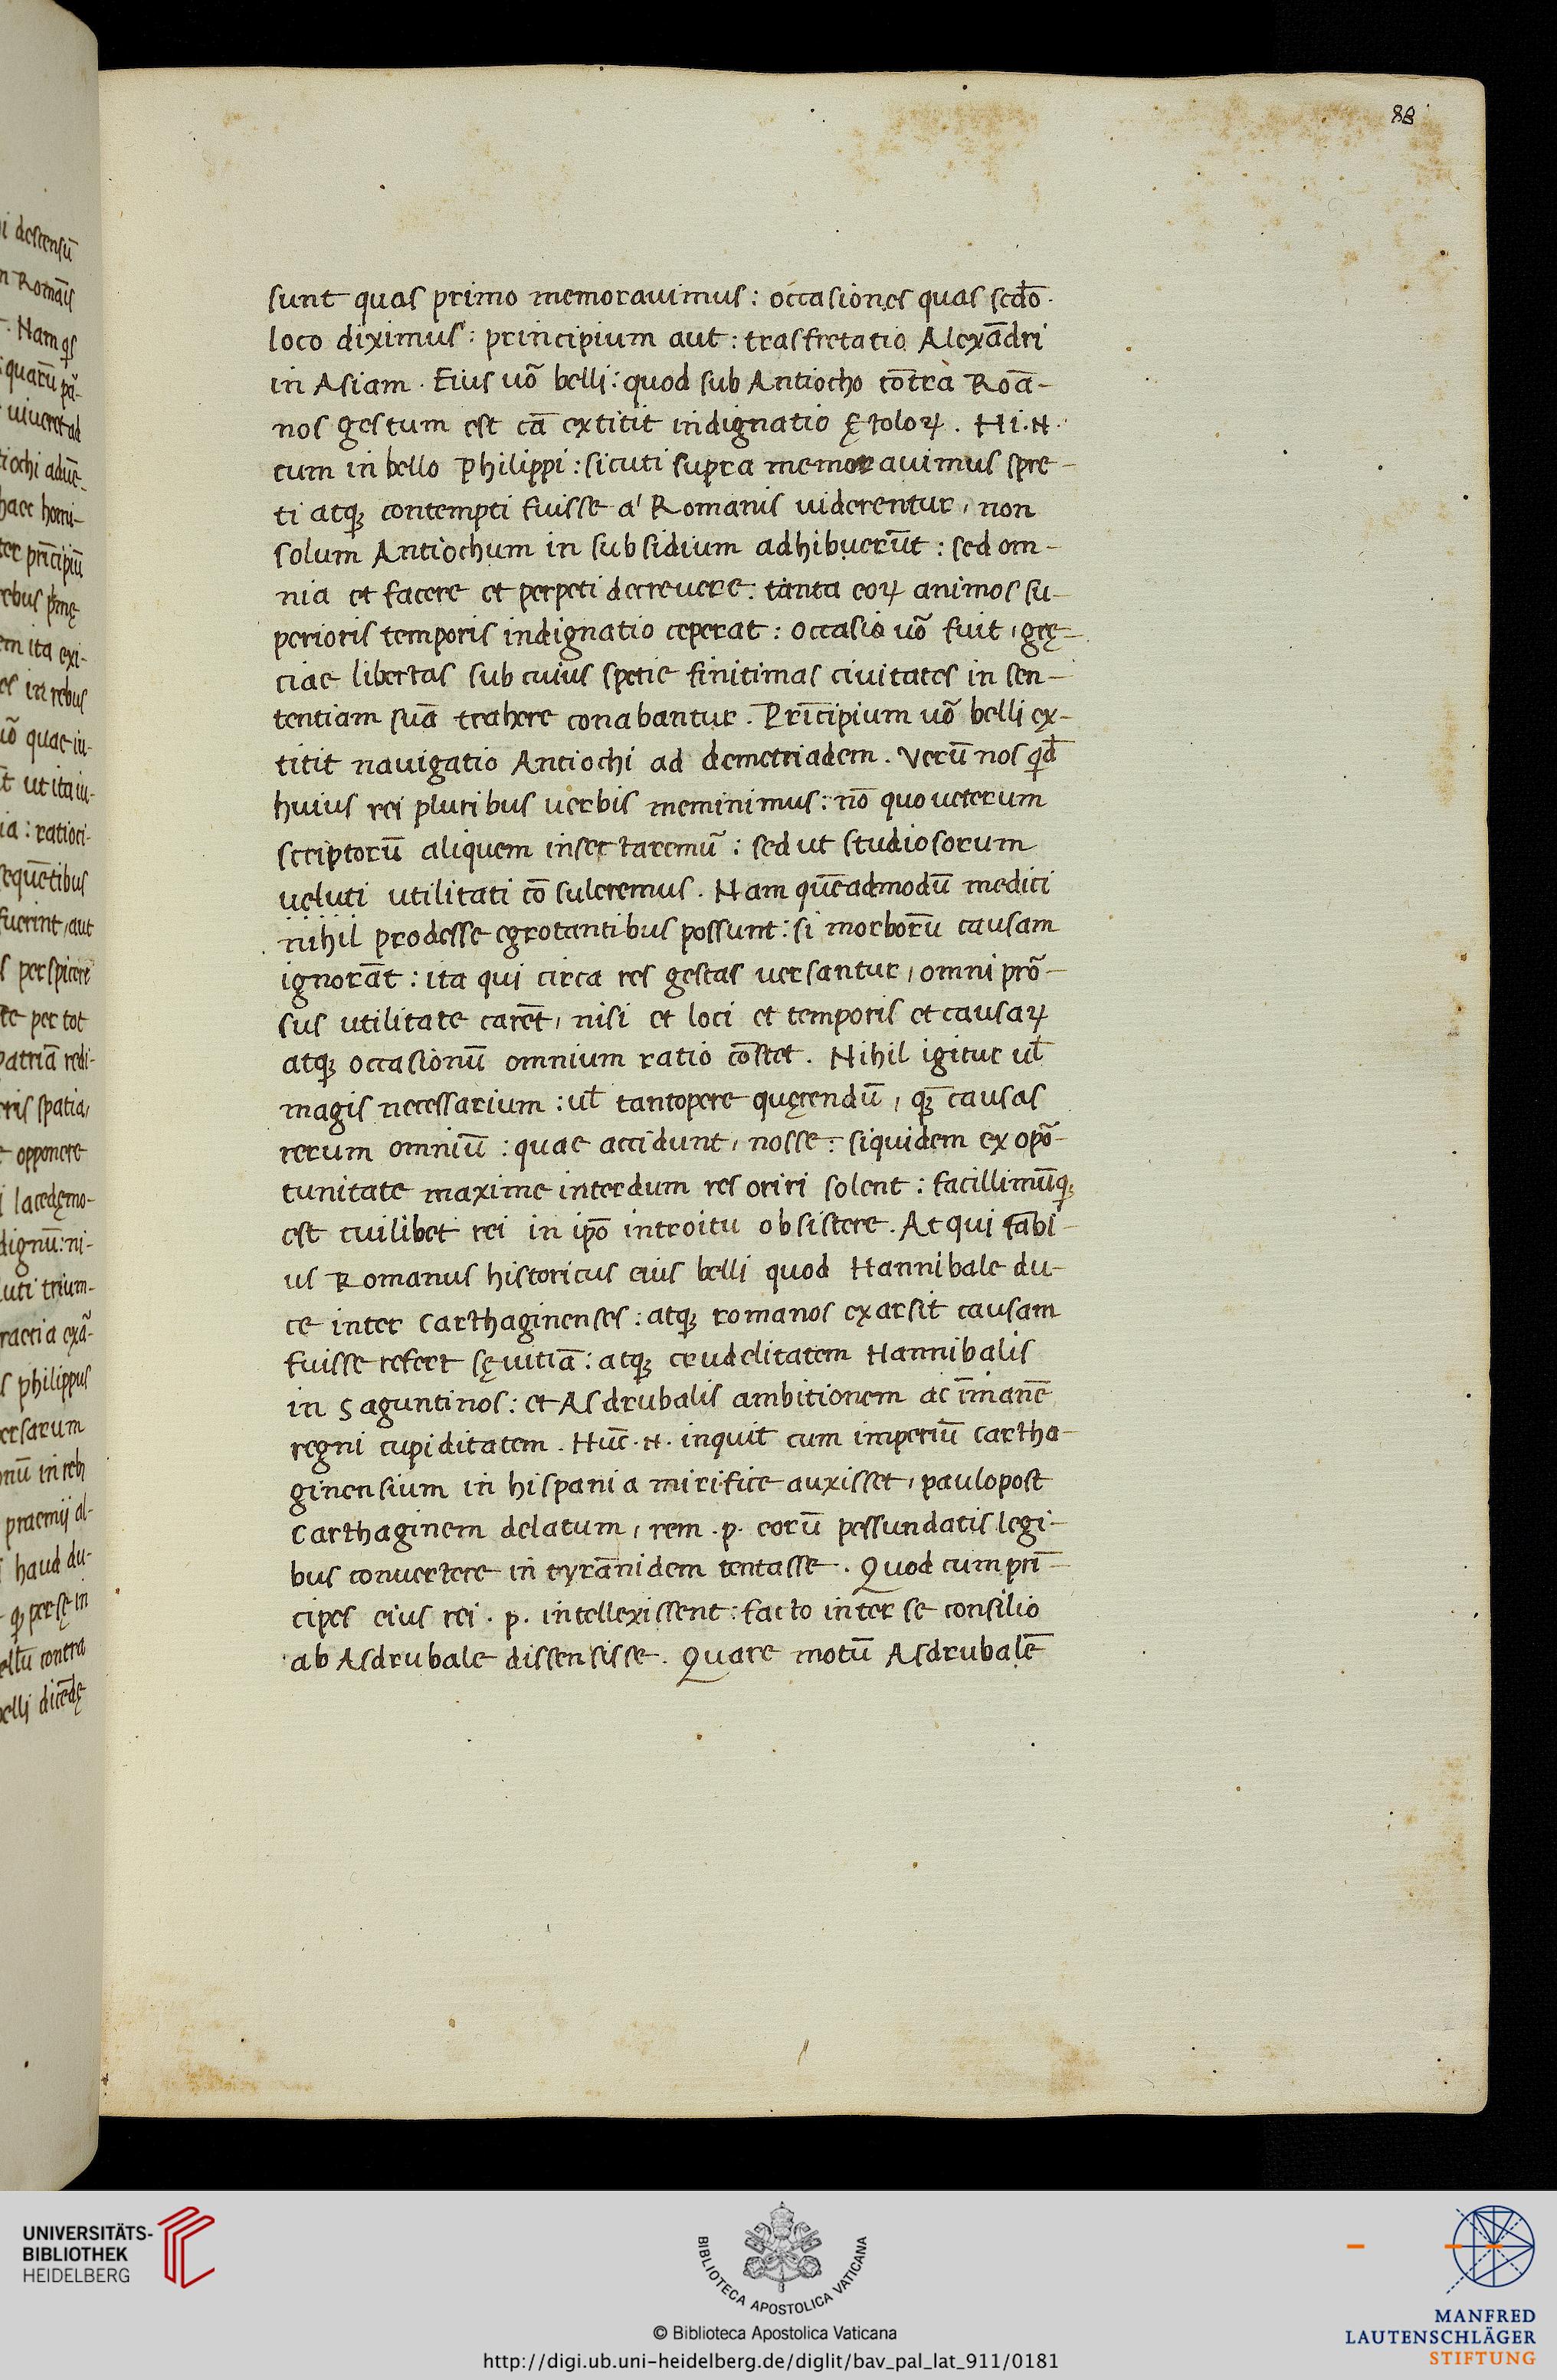 88
sunt quas primo memorauimus: occasiones quas scd̄o
loco diximus: principium aut: trasfretatio Alexādri
in Asiam. Eius uō belli: quod sub Antiocho cōtra Roā-
nos gestum est cā extitit indignatio ętoloꝝ. Hi.N.
cum in bello Philippi: sicuti supra memorauimus spre-
ti atqꝫ contempti fuisse a' Romanis uiderentur, non
solum Antiochum in subsidium adhibuerūt: sed om-
nia et facere et perpeti decreuere: tanta eoꝝ animos su-
perioris temporis indignatio ceperat: occasio uō fuit, grę-
ciae libertas sub cuius spetie finitimas ciuitates in sen-
tentiam suā trahere conabantur. Prīcipium uō belli ex-
titit nauigatio Antiochi ad demetriadem. Verū nos qd̄
huius rei pluribus uerbis meminimus: nō quo ueterum
scriptorū aliquem insectaremū: sed ut studiosorum
ueluti utilitati cōsuleremus. Nam quēadmodū medici
nihil prodesse egrotantibus possunt: si morborū causam
ignorāt: ita qui circa res gestas uersantur, omni prō-
sus utilitate carēt, nisi et loci et temporis et causaꝝ
atqꝫ occasionū omnium ratio cōstet. Nihil igitur ul̄
magis necessarium: ul̄ tantopere quęrendū, qꝫ̄ causas
rerum omniū: quae accidunt, nosse: siquidem ex opō-
tunitate maxime interdum res oriri solent: facillimūqꝫ
est cuilibet rei in ip̄o introitu obsistere. At qui fabi-
us Romanus historicus eius belli quod Hannibale du-
ce inter Carthaginenses: atqꝫ romanos exarsit causam
fuisse refert sęuitiā: atqꝫ crudelitatem Hannibalis
in Saguntinos: et Asdrubalis ambitionem ac īmanē
regni cupiditatem. Hūc.N. inquit cum imperiū Cartha-
ginensium in hispania mirifice auxisset, paulopost
Carthaginem delatum, rem .p. eorū pessundatis legi-
bus conuertere in tyrānidem tentasse. Quod cum prī-
cipes eius rei .p. intellexissent: facto inter se consilio
ab Asdrubale dissensisse. Quare motū Asdrubalē
UNIVERSITÄTS-
BIBLIOTHEK
HEIDELBERG
BIBLIOTECA APOSTOLICA VATICANA
© Biblioteca Apostolica Vaticana
http://digi.ub.uni-heidelberg.de/diglit/bav_pal_lat_911/0181
MANFRED
LAUTENSCHLÄGER
STIFTUNG